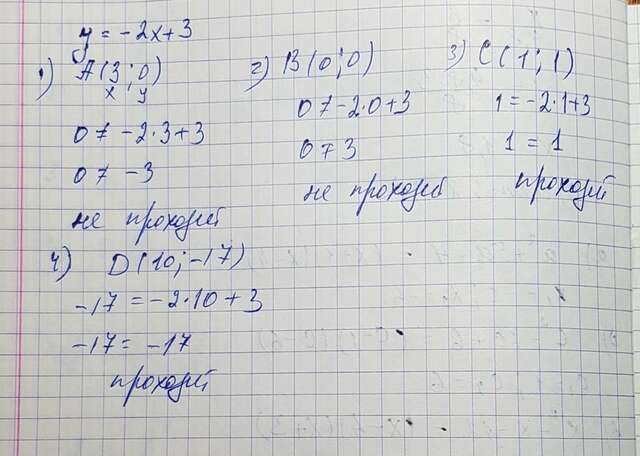 y = -2x+3
1) A(3;0)
x y
0 ≠ -2·3+3
0 ≠ -3
не проходит
2) B(0;0)
0 ≠ -2·0+3
0 ≠ 3
не проходит
3) C(1;1)
1 = -2·1+3
1 = 1
проходит
4) D(10;-17)
-17 = -2·10+3
-17 = -17
проходит